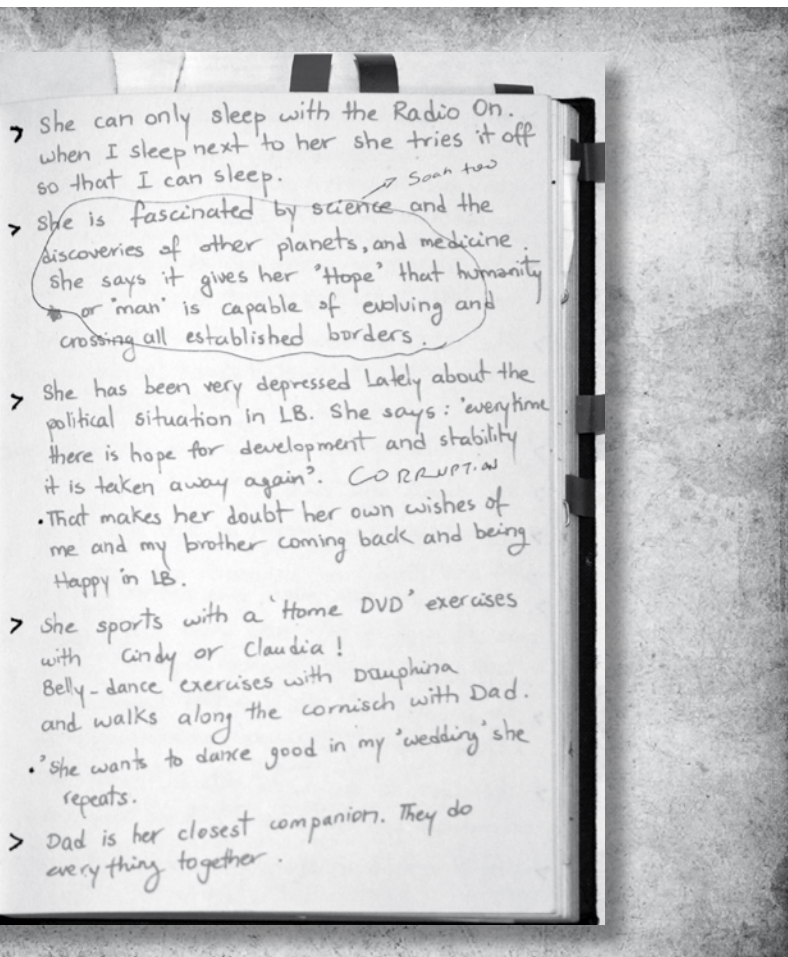 > She can only sleep with the Radio On.
when I sleep next to her she tries it off
so that I can sleep.
> she is fascinated by science and the
discoveries of other planets, and medicine.
she says it gives her "Hope" that humanity
or "man" is capable of evolving and
crossing all established borders.
> She has been very depressed Lately about the
political situation in LB. She says: "everytime
there is hope for development and stability
it is taken away again". CORRUPTION
• That makes her doubt her own wishes of
me and my brother coming back and being
Happy in LB.
> She sports with a 'Home DVD' exercises
with Cindy or Claudia!
Belly-dance exercises with Dauphina
and walks along the cornisch with Dad.
• 'She wants to dance good in my 'wedding' she
repeats.
> Dad is her closest companion. They do
everything together.